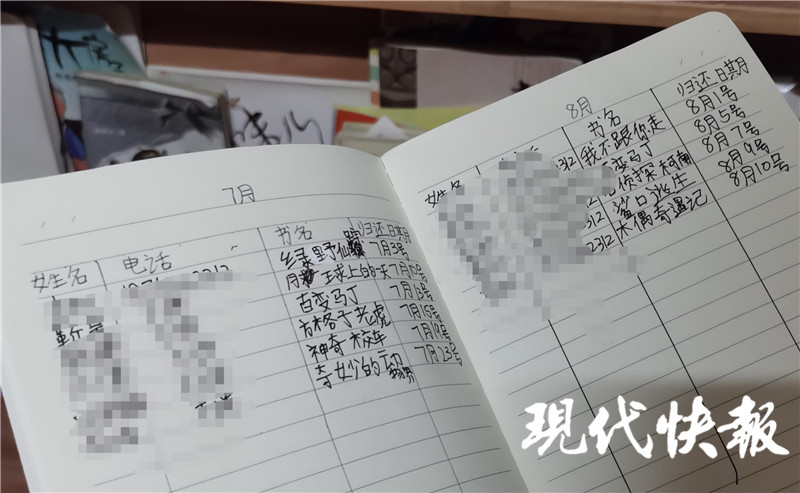 7月
姓名 电话 书名 归还日期
绿野仙踪 7月3号
月球上的一天 7月10号
百变马丁 7月13号
方格子老虎 7月15号
神奇校车 7月19号
奇妙的 7月23号
8月
姓名 书名 归还日期
2312 我不跟你走 8月1号
变马丁 8月5号
侦探柯南 8月7号
2312 鲨口逃生 8月9号
2312 木偶奇遇记 8月10号
现代快報